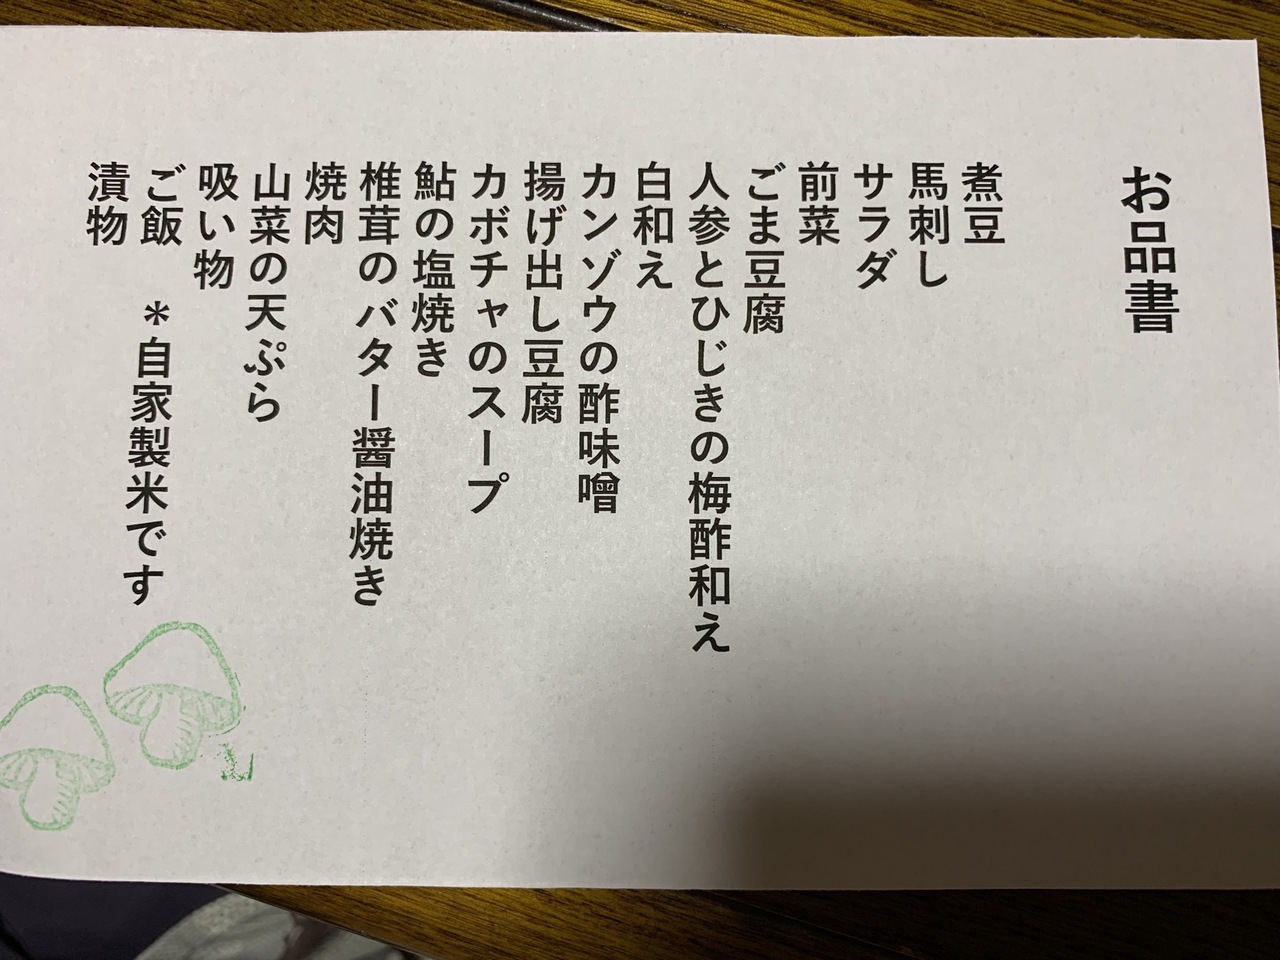 お品書
煮豆
馬刺し
サラダ
前菜
ごま豆腐
人参とひじきの梅酢和え
白和え
カンゾウの酢味噌
揚げ出し豆腐
カボチャのスープ
鮎の塩焼き
椎茸のバター醤油焼き
焼肉
山菜の天ぷら
吸い物
ご飯　＊自家製米です
漬物